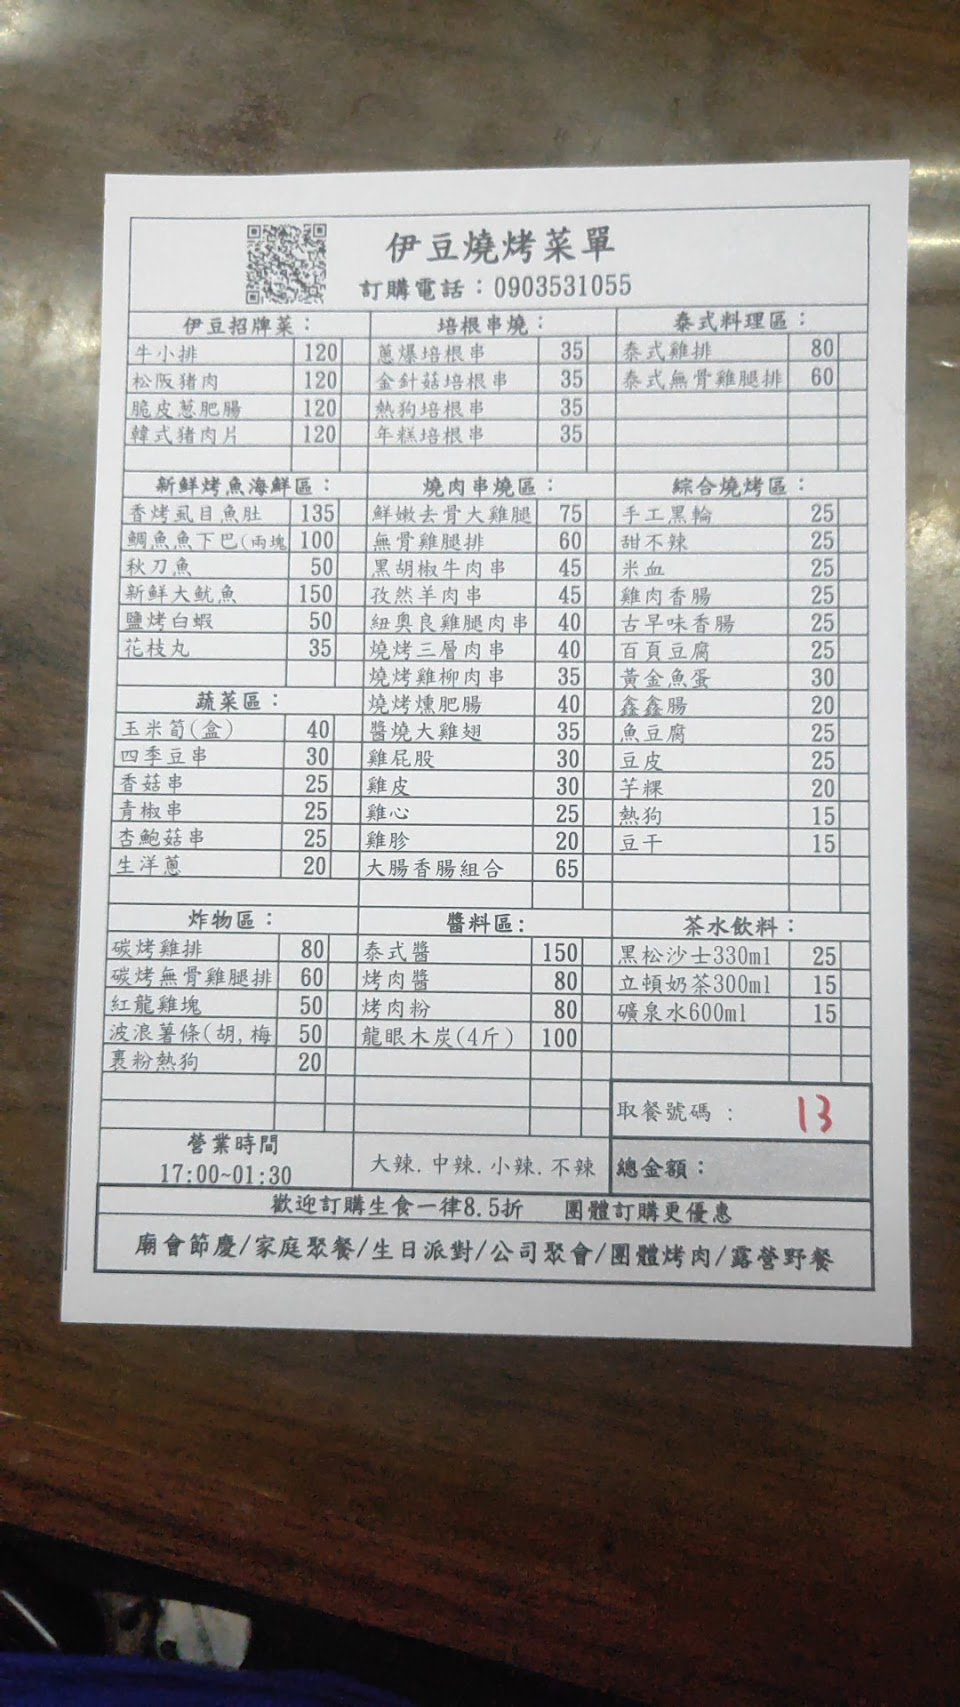 伊豆燒烤菜單
訂購電話：0903531055
伊豆招牌菜：
牛小排 120
松阪豬肉 120
脆皮蔥肥腸 120
韓式豬肉片 120
培根串燒：
蔥爆培根串 35
金針菇培根串 35
熱狗培根串 35
年糕培根串 35
泰式料理區：
泰式雞排 80
泰式無骨雞腿排 60
新鮮烤魚海鮮區：
香烤虱目魚肚 135
鯛魚魚下巴(兩塊 100
秋刀魚 50
新鮮大魷魚 150
鹽烤白蝦 50
花枝丸 35
蔬菜區：
玉米筍(盒) 40
四季豆串 30
香菇串 25
青椒串 25
杏鮑菇串 25
生洋蔥 20
燒肉串燒區：
鮮嫩去骨大雞腿 75
無骨雞腿排 60
黑胡椒牛肉串 45
孜然羊肉串 45
紐奧良雞腿肉串 40
燒烤三層肉串 40
燒烤雞柳肉串 35
燒烤燻肥腸 40
醬燒大雞翅 35
雞屁股 30
雞皮 30
雞心 25
雞胗 20
大腸香腸組合 65
綜合燒烤區：
手工黑輪 25
甜不辣 25
米血 25
雞肉香腸 25
古早味香腸 25
百頁豆腐 25
黃金魚蛋 30
鑫鑫腸 20
魚豆腐 25
豆皮 25
芋粿 20
熱狗 15
豆干 15
炸物區：
碳烤雞排 80
碳烤無骨雞腿排 60
紅龍雞塊 50
波浪薯條(胡,梅 50
裹粉熱狗 20
醬料區:
泰式醬 150
烤肉醬 80
烤肉粉 80
龍眼木炭(4斤) 100
茶水飲料：
黑松沙士330ml 25
立頓奶茶300ml 15
礦泉水600ml 15
取餐號碼： 13
營業時間
17:00~01:30
大辣.中辣.小辣.不辣
總金額：
歡迎訂購生食一律8.5折 團體訂購更優惠
廟會節慶/家庭聚餐/生日派對/公司聚會/團體烤肉/露營野餐